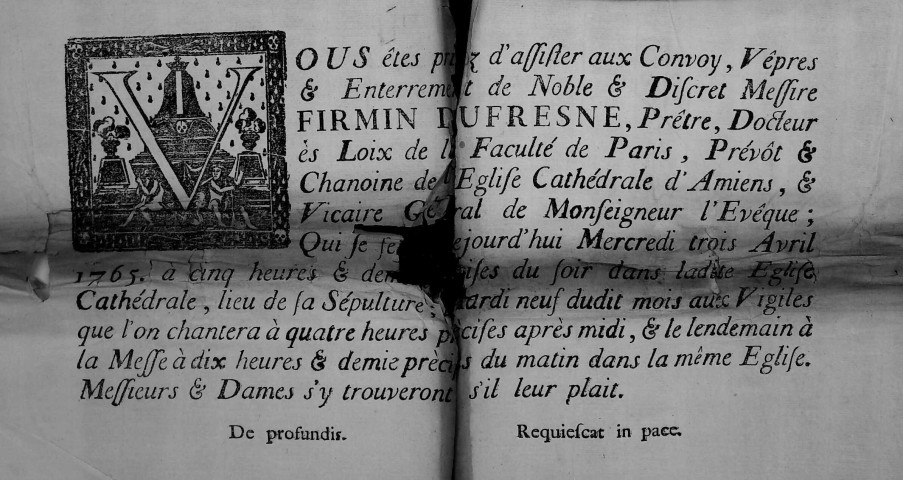 VOUS êtes priez d'aſſiſter aux Convoy, Vêpres
& Enterrement de Noble & Diſcret Meſſire
FIRMIN DUFRESNE, Prêtre, Docteur
ès Loix de la Faculté de Paris, Prévôt &
Chanoine de l'Egliſe Cathédrale d'Amiens, &
Vicaire Général de Monſeigneur l'Evêque;
Qui ſe fera cejourd'hui Mercredi trois Avril
1765. à cinq heures & demie préciſes du ſoir dans ladite Egliſe
Cathédrale, lieu de ſa Sépulture; Mardi neuf dudit mois aux Vigiles
que l'on chantera à quatre heures préciſes après midi, & le lendemain à
la Meſſe à dix heures & demie préciſes du matin dans la même Egliſe.
Meſſieurs & Dames s'y trouveront s'il leur plait.
De profundis. Requieſcat in pace.